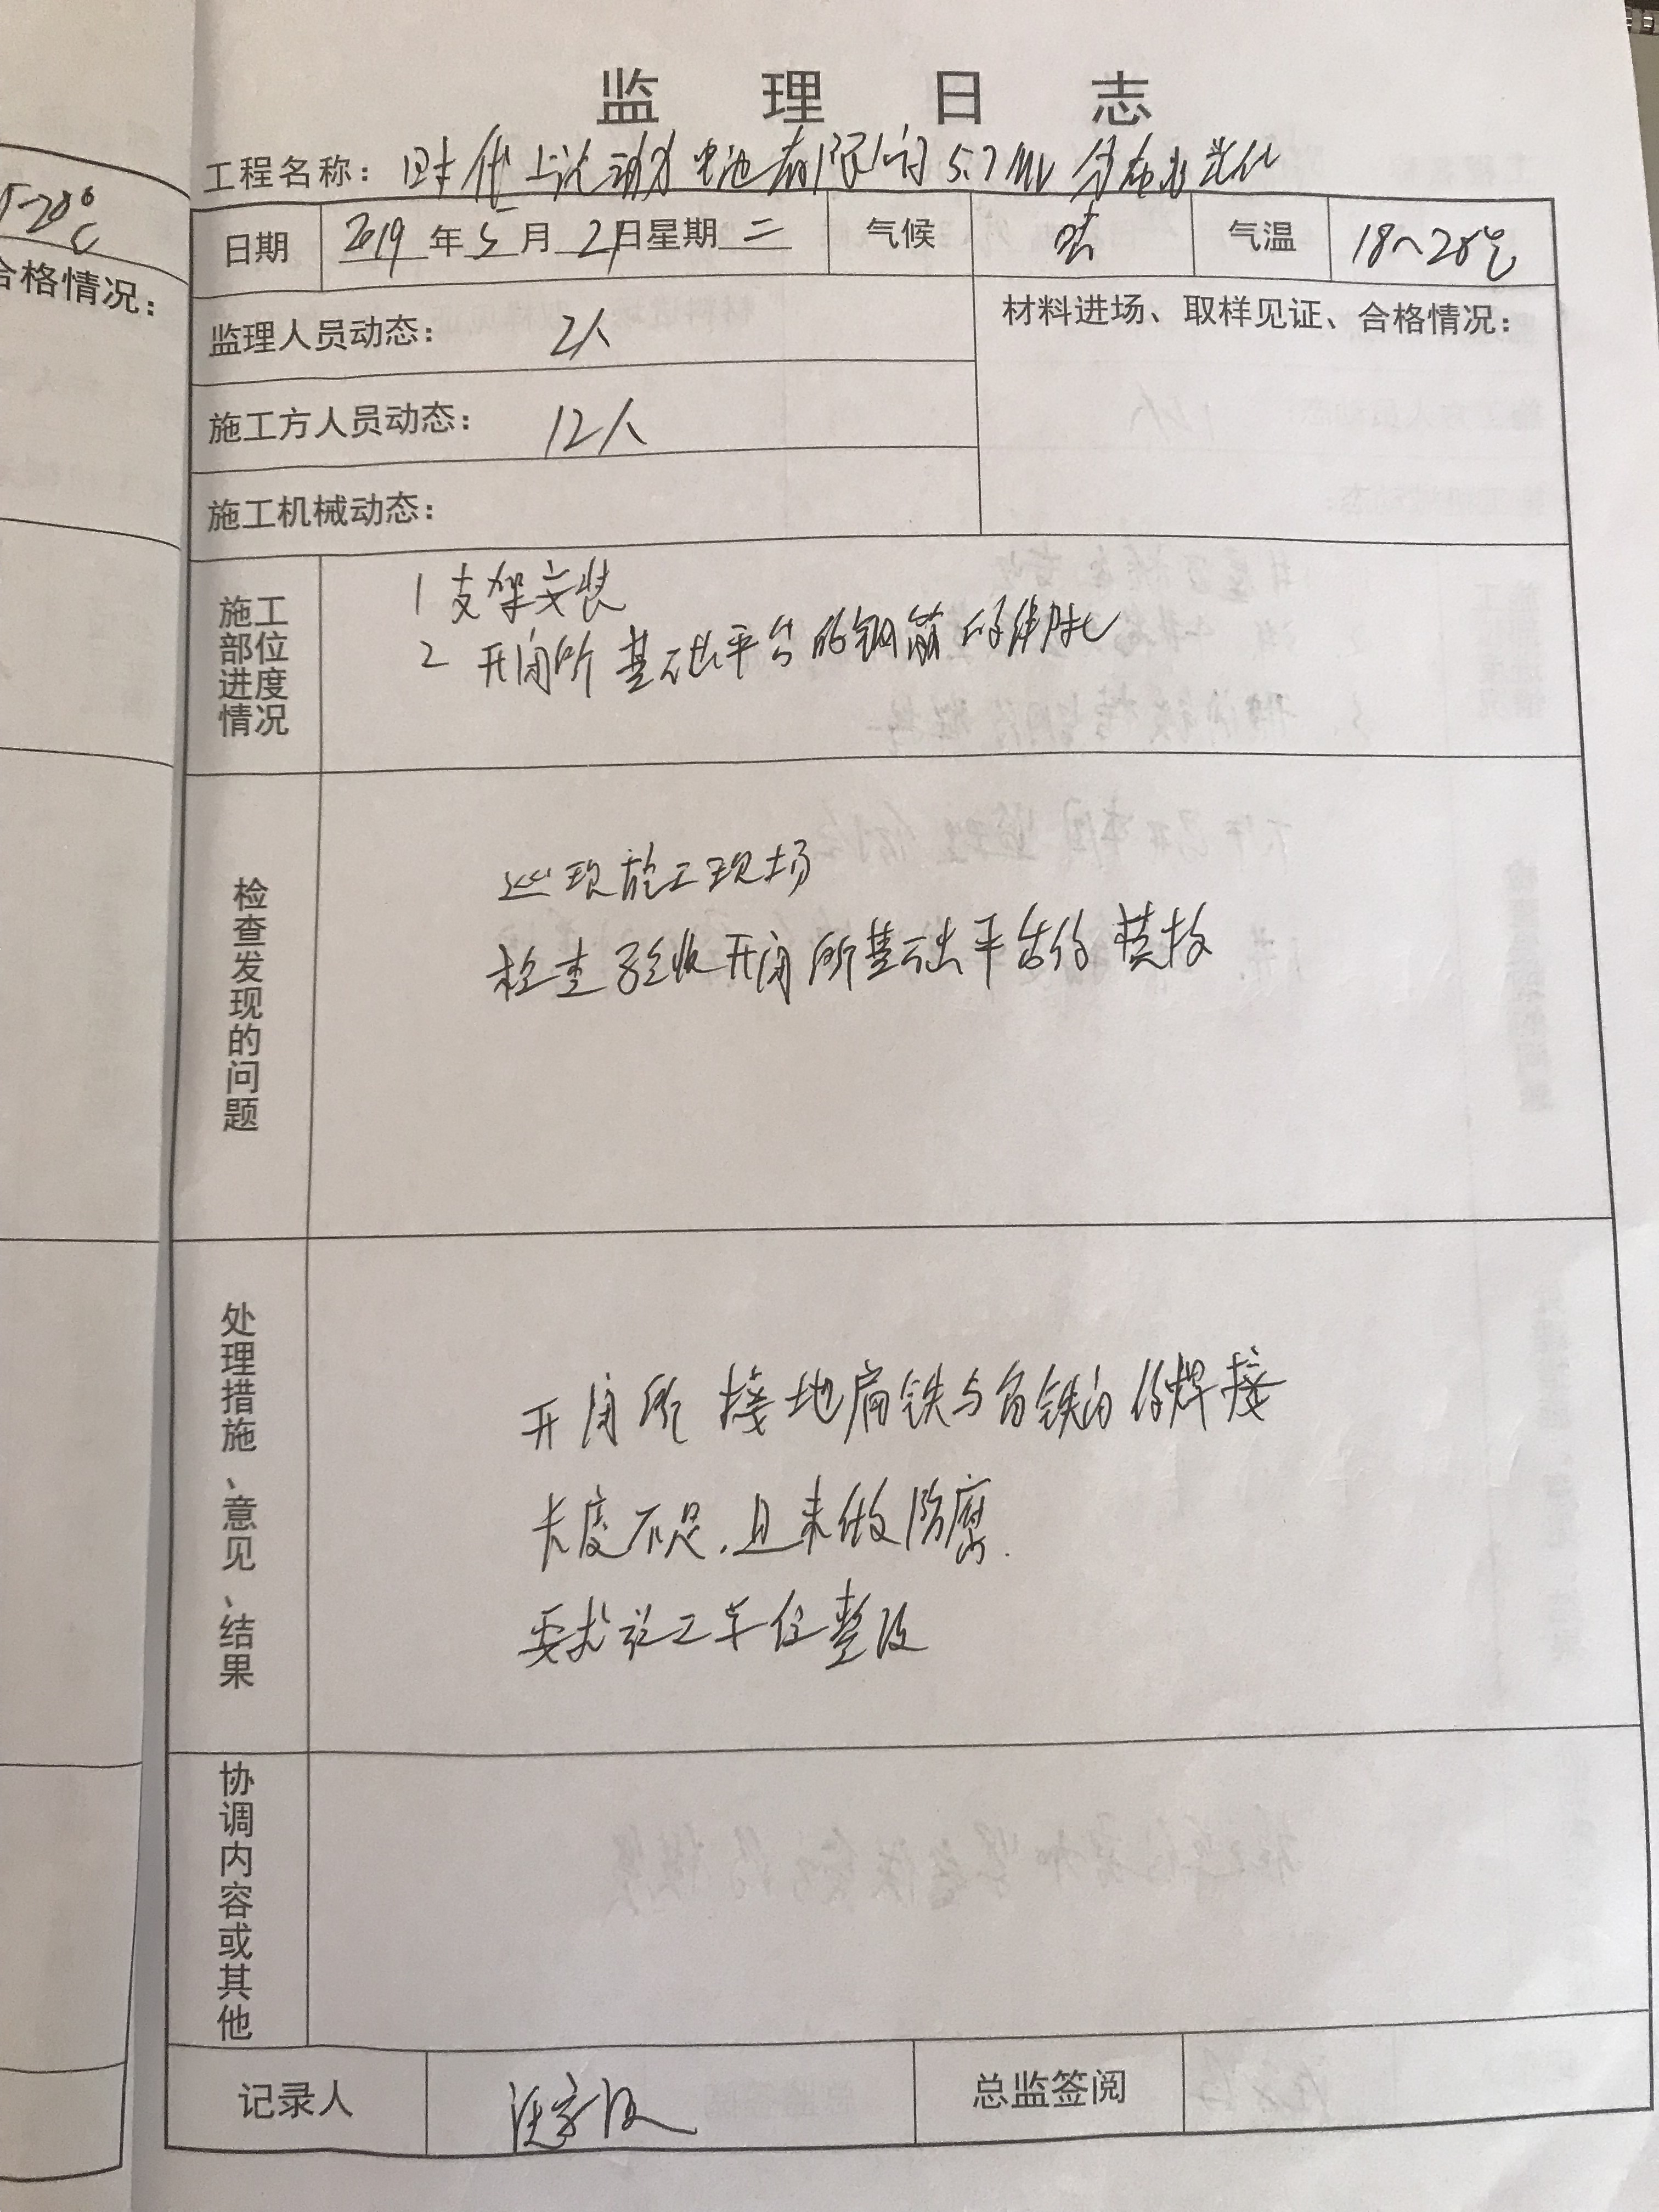 监理日志
工程名称：时代上汽动力电池有限公司5.7MW分布式光伏
日期 2019年5月21日星期二 气候 晴 气温 18~28℃
监理人员动态： 2人
材料进场、取样见证、合格情况：
施工方人员动态： 12人
施工机械动态：
施工部位进度情况
1 支架安装
2 开闭所基础平台的钢筋的绑扎
检查发现的问题
巡现施工现场
检查验收开闭所基础平台的模板
处理措施、意见、结果
开闭所接地扁铁与角铁的焊接
长度不足，且未做防腐.
要求施工单位整改
协调内容或其他
记录人
总监签阅
5-28℃
合格情况：